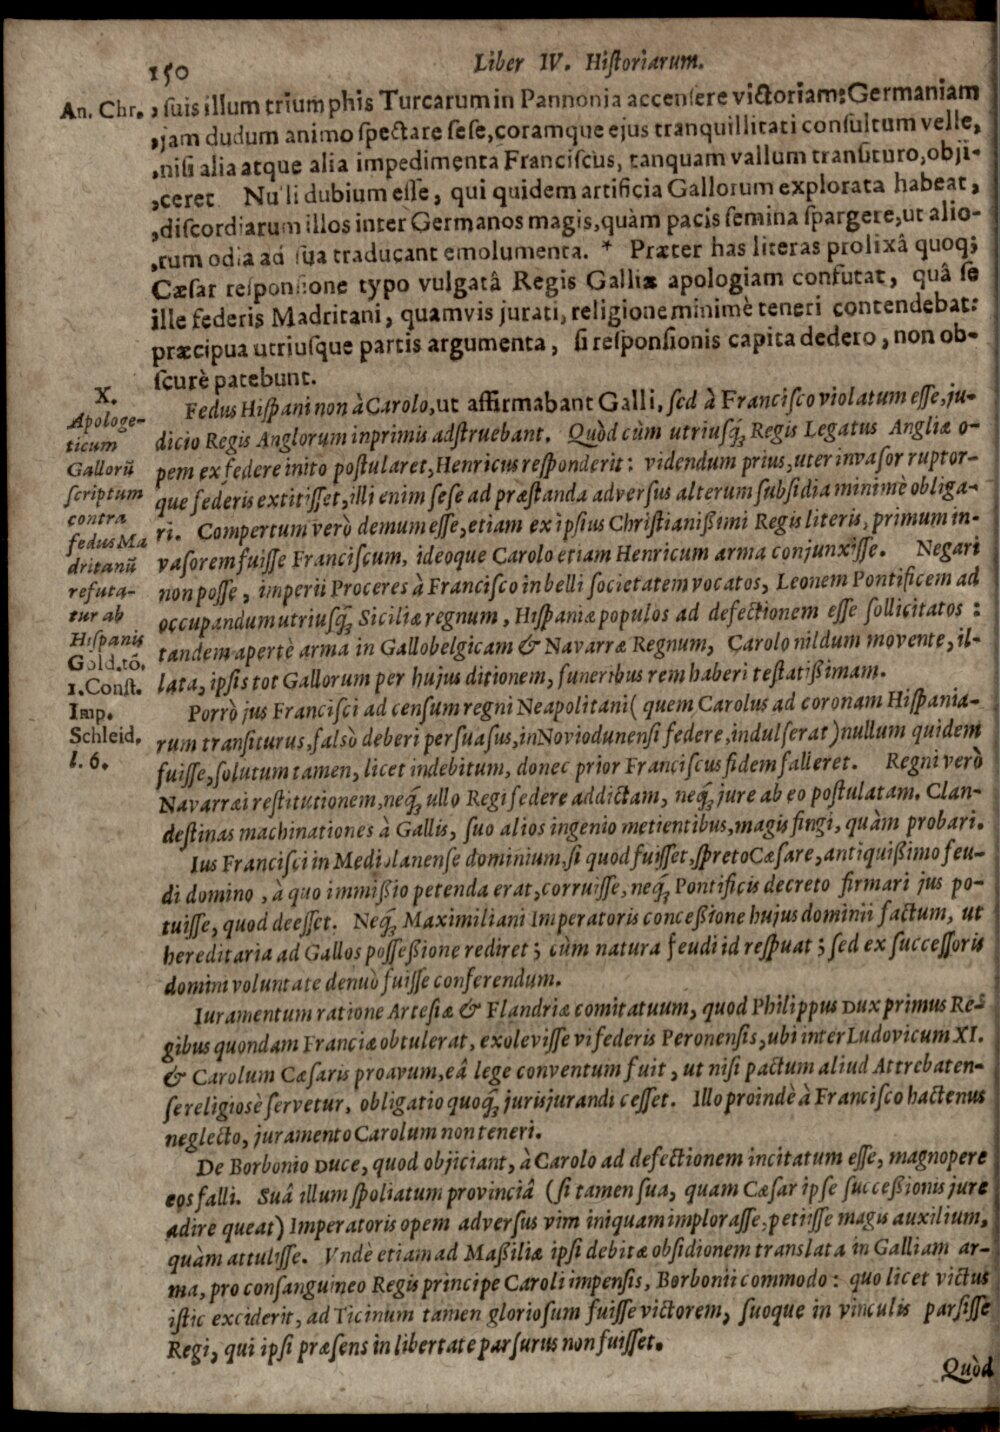 150
Liber IV. Hiſtoriarum.
An. Chr. , ſuis illum triumphis Turcarum in Pannonia accenſere victoriam: Germaniam
,jam dudum animo ſpectare ſeſe, coramque ejus tranquillitati conſultum velle,
,niſi alia atque alia impedimenta Franciſcus, tanquam vallum tranſituro, obji-
,ceret. Nulli dubium eſſe, qui quidem artificia Gallorum explorata habeat,
,diſcordiarum illos inter Germanos magis, quàm pacis ſemina ſpargere, ut alio-
,rum odia ad ſua traducant emolumenta. * Præter has literas prolixâ quoq;
Cæſar reſponſione typo vulgatâ Regis Galliæ apologiam confutat, quâ ſe
ille federis Madritani, quamvis jurati, religione minimè teneri contendebat:
præcipua utriuſque partis argumenta, ſi reſponſionis capita dedero, non ob-
ſcurè patebunt.
X.
Apologe-
ticum
Gallorū
ſcriptum
contra
fedus Ma
dritanū
refuta-
tur ab
Hiſpanis
Gold. tō.
1. Conſt.
Imp.
Schleid.
l. 6.
Fedus Hiſpani non à Carolo, ut affirmabant Galli, ſed à Franciſco violatum eſſe, ju-
dicio Regis Anglorum inprimis adſtruebant. Quòd cùm utriuſq; Regis Legatus Angliæ o-
pem ex federe inito poſtularet, Henricus reſponderit: videndum prius, uter invaſor ruptor-
que federis extitiſſet, illi enim ſeſe ad præſtanda adverſus alterum ſubſidia minimè obliga-
ri. Compertum verò demum eſſe, etiam ex ipſius Chriſtianißimi Regis literis, primum in-
vaſorem fuiſſe Franciſcum, ideoque Carolo etiam Henricum arma conjunxiſſe. Negari
non poſſe, imperii Proceres à Franciſco in belli ſocietatem vocatos, Leonem Pontificem ad
occupandum utriuſq; Siciliæ regnum, Hiſpaniæ populos ad defectionem eſſe ſollicitatos:
tandem apertè arma in Gallobelgicam & Navarræ Regnum, Carolo nildum movente, il-
lata, ipſis tot Gallorum per hujus ditionem, funeribus rem haberi teſtatißimam.
Porrò jus Franciſci ad cenſum regni Neapolitani (quem Carolus ad coronam Hiſpania-
rum tranſiturus, falsò deberi perſuaſus, in Noviodunenſi federe, indulſerat) nullum quidem
fuiſſe, ſolutum tamen, licet indebitum, donec prior Franciſcus fidem falleret. Regni verò
Navarræi reſtitutionem, neq; ullo Regi federe addictam, neq; jure ab eo poſtulatam. Clan-
deſtinas machinationes à Gallis, ſuo alios ingenio metientibus, magis fingi, quàm probari.
Ius Franciſci in Mediolanenſe dominium, ſi quod fuiſſet, ſpreto Cæſare, antiquißimo feu-
di domino, à quo immißio petenda erat, corruiſſe, neq; Pontificis decreto firmari jus po-
tuiſſe, quod deeſſet. Neq; Maximiliani Imperatoris conceßione hujus dominii factum, ut
hereditaria ad Gallos poſſeßione rediret; cùm natura feudi id reſpuat; ſed ex ſucceſſoris
domini voluntate denuò fuiſſe conferendum.
Iuramentum ratione Arteſiæ & Flandriæ comitatuum, quod Philippus Dux primus Re-
gibus quondam Franciæ obtulerat, exoleviſſe vi federis Peronenſis, ubi inter Ludovicum XI.
& Carolum Cæſaris proavum, eâ lege conventum fuit, ut niſi pactum aliud Attrebaten-
ſe religiosè ſervetur, obligatio quoq; jurisjurandi ceſſet. Illo proindè à Franciſco hactenus
neglecto, juramento Carolum non teneri.
De Borbonio Duce, quod objiciant, à Carolo ad defectionem incitatum eſſe, magnopere
eos falli. Suâ illum ſpoliatum provinciâ (ſi tamen ſua, quam Cæſar ipſe ſucceßionis jure
adire queat) Imperatoris opem adverſus vim iniquam imploraſſe, petiiſſe magis auxilium,
quàm attuliſſe. Vndè etiam ad Maßiliæ ipſi debitæ obſidionem translata in Galliam ar-
ma, pro conſanguineo Regis principe Caroli impenſis, Borbonii commodo: quo licet victus
iſtic exciderit, ad Ticinum tamen glorioſum fuiſſe victorem, ſuoque in vinculis parſiſſe
Regi, qui ipſi præſens in libertate parſurus non fuiſſet.
Quòd